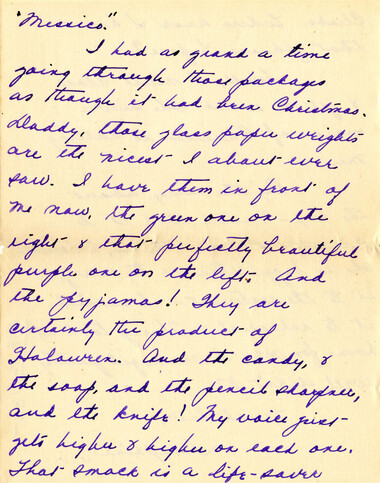 "Messico."
I had as grand a time
going through those packages
as though it had been Christmas.
Daddy, those glass paper weights
are the nicest I about ever
saw. I have them in front of
me now, the green one on the
right & that perfectly beautiful
purple one on the left. And
the pyjamas! They are
certainly the product of
And the candy, &
the soap, and the pencil sharpener,
and the knife! My voice just
gets higher & higher on each one.
That smock is a life-saver